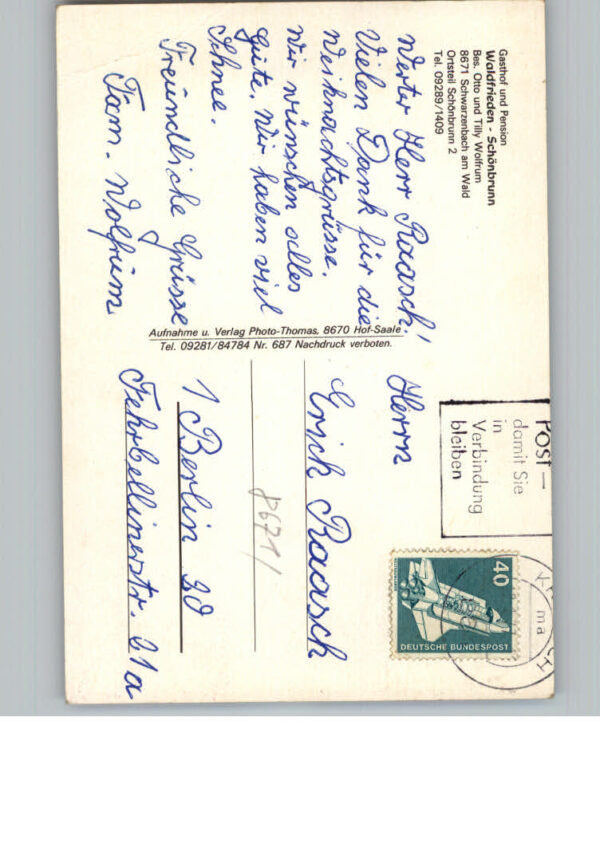 Gasthof und Pension
Waldfrieden - Schönbrunn
Bes. Otto und Tilly Wolfrum
8671 Schwarzenbach am Wald
Ortsteil Schönbrunn 2
Tel. 09289/1409
Werter Herr Raasch!
Vielen Dank für die
Weihnachtsgrüsse.
Wir wünschen alles
Gute. Wir haben viel
Schnee.
Freundliche Grüsse
Fam. Wolfrum
Aufnahme u. Verlag Photo-Thomas, 8670 Hof-Saale
Tel. 09281/84784 Nr. 687 Nachdruck verboten.
Post -
damit Sie
in
Verbindung
bleiben
40
DEUTSCHE BUNDESPOST
ma
Herrn
Erich Raasch
8671/
1 Berlin 20
Fehrbellinerstr. 21a